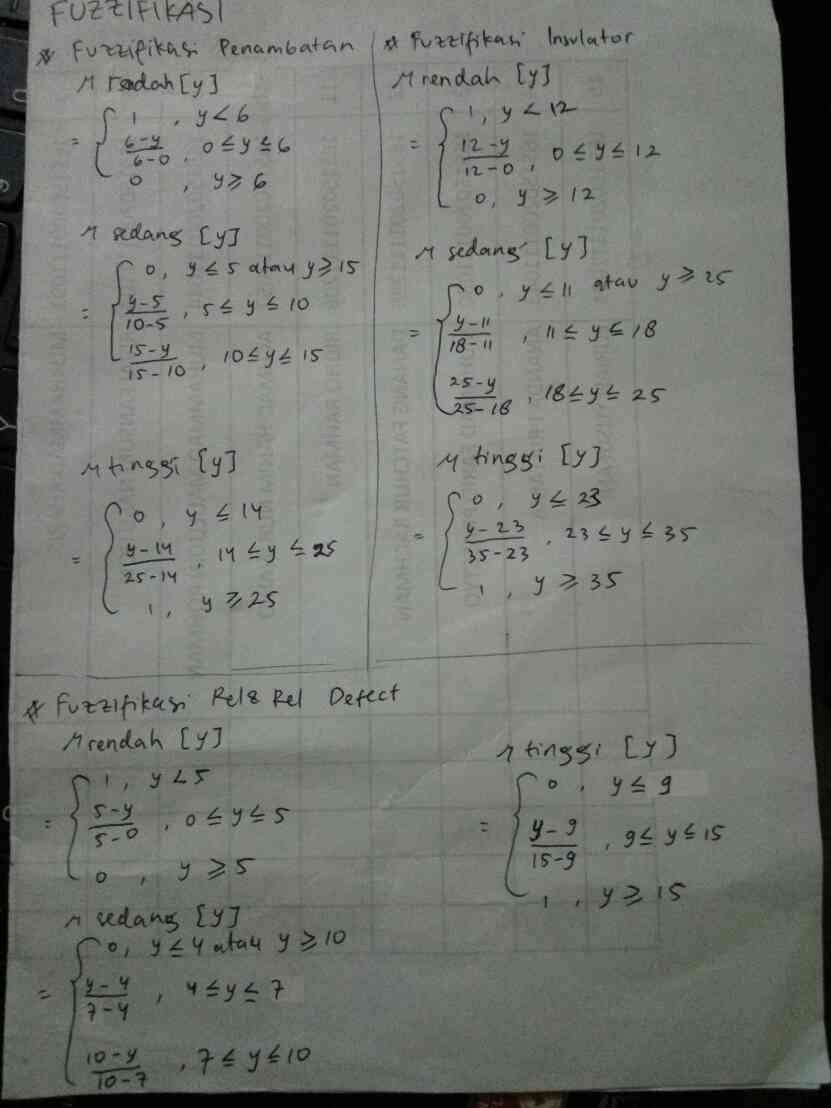 FUZZIFIKASI
* Fuzzifikasi Penambatan
μ rendah [y]
= { 1 , y < 6
(6-y)/(6-0) , 0 ≤ y ≤ 6
0 , y ≥ 6
μ sedang [y]
= { 0, y ≤ 5 atau y ≥ 15
(y-5)/(10-5) , 5 ≤ y ≤ 10
(15-y)/(15-10) , 10 ≤ y ≤ 15
μ tinggi [y]
= { 0 , y ≤ 14
(y-14)/(25-14) , 14 ≤ y ≤ 25
1, y ≥ 25
* Fuzzifikasi Insulator
μ rendah [y]
= { 1, y < 12
(12-y)/(12-0) , 0 ≤ y ≤ 12
0, y ≥ 12
μ sedang [y]
= { 0 , y ≤ 11 atau y ≥ 25
(y-11)/(18-11) , 11 ≤ y ≤ 18
(25-y)/(25-18) , 18 ≤ y ≤ 25
μ tinggi [y]
= { 0 , y ≤ 23
(y-23)/(35-23) , 23 ≤ y ≤ 35
1 , y ≥ 35
* Fuzzifikasi Rel & Rel Defect
μ rendah [y]
= { 1 , y < 5
(5-y)/(5-0) , 0 ≤ y ≤ 5
0 , y ≥ 5
μ sedang [y]
= { 0, y ≤ 4 atau y ≥ 10
(y-4)/(7-4) , 4 ≤ y ≤ 7
(10-y)/(10-7) , 7 ≤ y ≤ 10
μ tinggi [y]
= { 0 , y ≤ 9
(y-9)/(15-9) , 9 ≤ y ≤ 15
1 , y ≥ 15